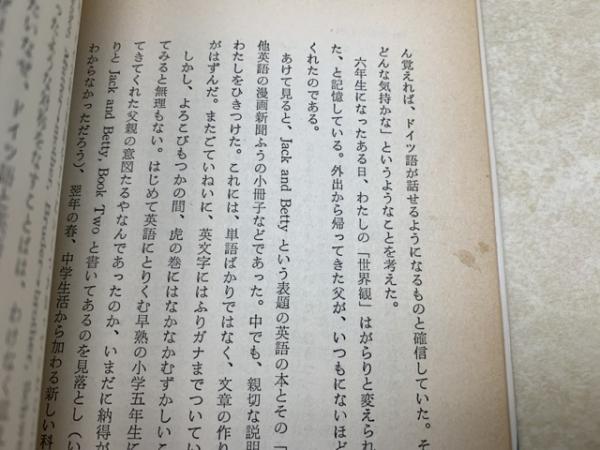 ん覚えれば、ドイツ語が話せるようになるものと確信していた。そ
どんな気持かな」というようなことを考えた。
六年生になったある日、わたしの「世界観」はがらりと変えられ
た、と記憶している。外出から帰ってきた父が、いつもにないほど
くれたのである。
あけて見ると、Jack and Betty という表題の英語の本とその「
他英語の漫画新聞ふうの小冊子などであった。中でも、親切な説明
わたしをひきつけた。これには、単語ばかりではなく、文章の作り
がはずんだ。またごていねいに、英文字にはふりガナまでついてい
しかし、よろこびもつかの間、虎の巻にはなかなかむずかしいこ
てみると無理もない。はじめて英語にとりくむ早熟の小学五年生に
てきてくれた父親の意図たるやなんであったのか、いまだに納得が
りと Jack and Betty, Book Two と書いてあるのを見落とし（い
わからなかっただろう）、翌年の春、中学生活から加わる新しい科